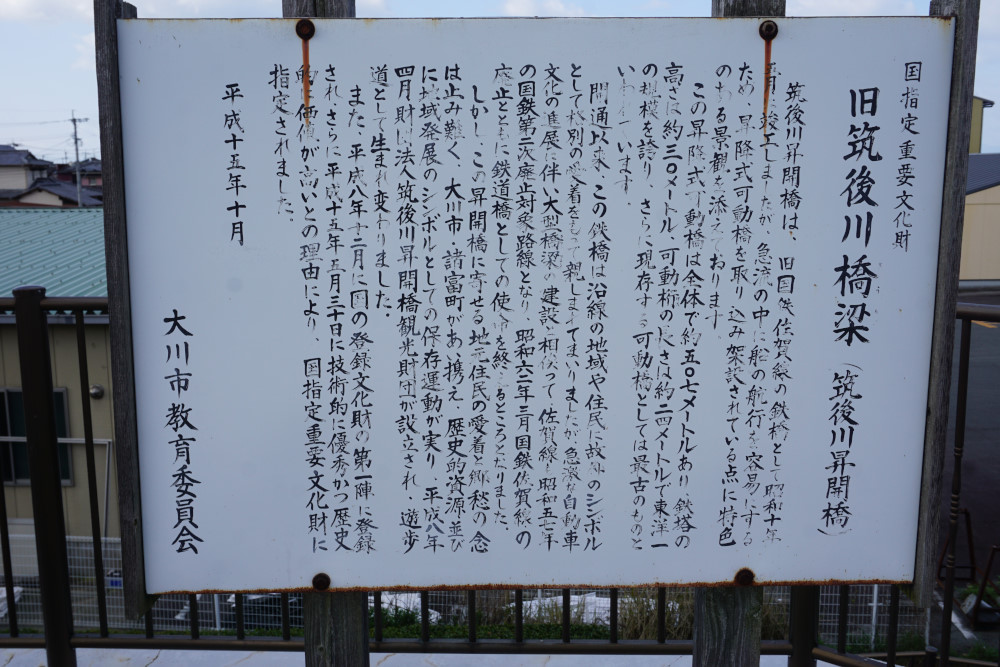 国指定重要文化財
旧筑後川橋梁(筑後川昇開橋)
筑後川昇開橋は、旧国鉄佐賀線の鉄橋として昭和十年
竣工しましたが、急流の中に船の航行を容易にする
ため、昇降式可動橋を取り込み架設されている点に特色
のある景観を添えております。
この昇降式可動橋は全体で約五〇七メートルあり、鉄塔の
高さは約三〇メートル、可動桁の長さは約二四メートルで東洋一
の規模を誇り、さらに現存する可動橋としては最古のものと
いわれています。
開通以来、この鉄橋は沿線の地域や住民に故郷のシンボル
として格別の愛着をもって親しまれてまいりましたが、急激な自動車
文化の進展に伴い大型橋梁の建設と相俟って、佐賀線も昭和五
の国鉄第二次廃止対象路線となり、昭和六二年三月国鉄佐賀線の
廃止とともに鉄道橋としての使命を終えるところとなりました。
しかし、この昇開橋に寄せる地元住民の愛着と郷愁の念
は止み難く、大川市・諸富町があい携え、歴史的資源並び
に地域発展のシンボルとしての保存運動が実り、平成八年
四月財団法人筑後川昇開橋観光財団が設立され、遊歩
道として生まれ変わりました。
また、平成八年十二月に国の登録文化財の第一陣に登録
され、さらに平成十五年五月三十日に技術的に優秀かつ歴史
的に価値が高いとの理由により、国指定重要文化財に
指定されました。
平成十五年十月
大川市教育委員会